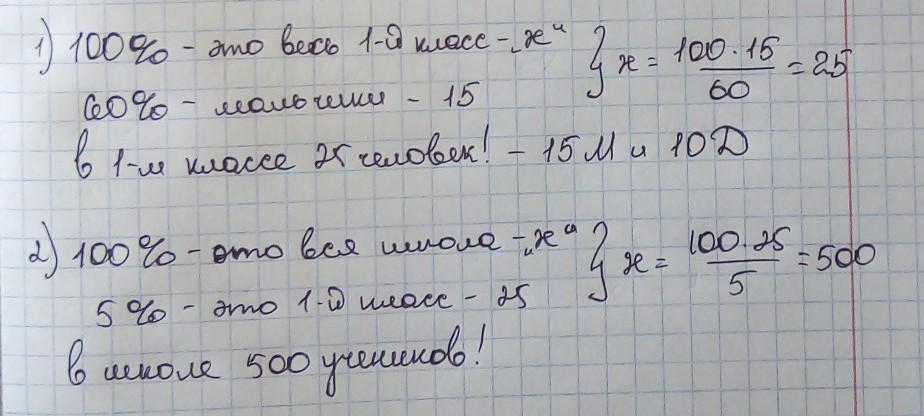 1) 100% - это весь 1-й класс - „х“ } х = 100·15/60 = 25
60% - мальчики - 15
В 1-м классе 25 человек! - 15 М и 10 Д
2) 100% - это вся школа - „х“ } х = 100·25/5 = 500
5% - это 1-й класс - 25
В школе 500 учеников!